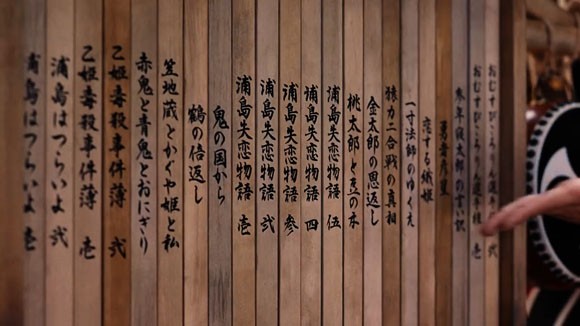 おむすびころりん選手権 弐
おむすびころりん選手権 壱
参年寝太郎の言い訳
勇者彦星
恋する織姫
一寸法師のゆくえ
猿カニ合戦の真相
金太郎の恩返し
桃太郎と豆の木
浦島失恋物語 伍
浦島失恋物語 四
浦島失恋物語 参
浦島失恋物語 弐
浦島失恋物語 壱
鬼の国から
鶴の倍返し
笠地蔵とかぐや姫と私
赤鬼と青鬼とおにぎり
乙姫毒殺事件簿 弐
乙姫毒殺事件簿 壱
浦島はつらいよ 弐
浦島はつらいよ 壱